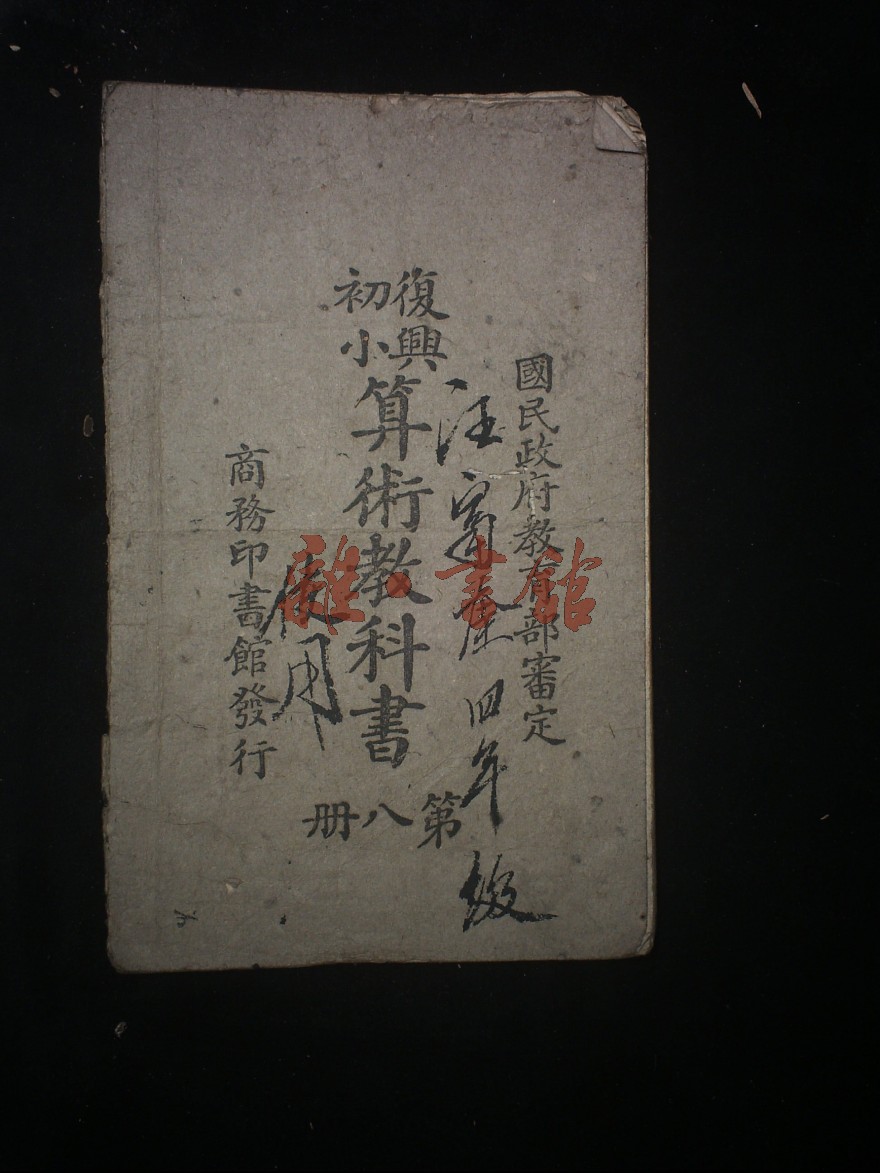 國民政府教育部審定
汪
四年級
復興
初小
算術教科書
第八册
使用
商務印書館發行
雜·書館